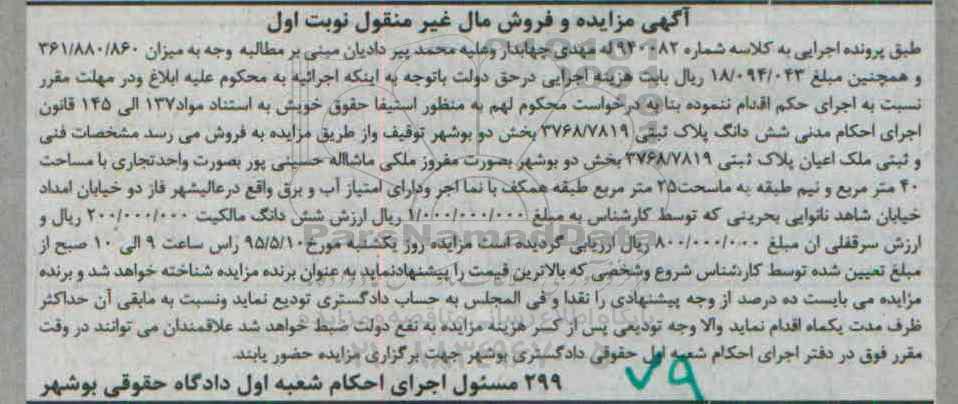 آگهی مزایده و فروش مال غیر منقول نوبت اول
طبق پرونده اجرایی به کلاسه شماره ۹۴۰۰۸۲ له مهدی جهابدار وعلیه محمد پیر دادیان مبنی بر مطالبه وجه به میزان ۳۶۱/۸۸۰/۸۶۰
و همچنین مبلغ ۱۸/۰۹۴/۰۴۳ ریال بابت هزینه اجرایی درحق دولت باتوجه به اینکه اجرائیه به محکوم علیه ابلاغ ودر مهلت مقرر
نسبت به اجرای حکم اقدام ننموده بنا به درخواست محکوم لهم به منظور استیفا حقوق خویش به استناد مواد۱۳۷ الی ۱۴۵ قانون
اجرای احکام مدنی شش دانگ پلاک ثبتی ۳۷۶۸/۷۸۱۹ بخش دو بوشهر توقیف واز طریق مزایده به فروش می رسد مشخصات فنی
و ثبتی ملک اعیان پلاک ثبتی ۳۷۶۸/۷۸۱۹ بخش دو بوشهر بصورت مفروز ملکی ماشااله حسینی پور بصورت واحدتجاری با مساحت
۴۰ متر مربع و نیم طبقه به ماسحت۲۵ متر مربع طبقه همکف با نما اجر ودارای امتیاز آب و برق واقع درعالیشهر فاز دو خیابان امداد
خیابان شاهد نانوایی بحرینی که توسط کارشناس به مبلغ ۱/۰۰۰/۰۰۰/۰۰۰ ریال ارزش شش دانگ مالکیت ۲۰۰/۰۰۰/۰۰۰ ریال و
ارزش سرقفلی ان مبلغ ۸۰۰/۰۰۰/۰۰۰ ریال ارزیابی گردیده است مزایده روز یکشنبه مورخ۹۵/۵/۱۰ راس ساعت ۹ الی ۱۰ صبح از
مبلغ تعیین شده توسط کارشناس شروع وشخصی که بالاترین قیمت را پیشنهادنماید به عنوان برنده مزایده شناخته خواهد شد و برنده
مزایده می بایست ده درصد از وجه پیشنهادی را نقدا و فی المجلس به حساب دادگستری تودیع نماید ونسبت به مابقی آن حداکثر
ظرف مدت یکماه اقدام نماید والا وجه تودیعی پس از کسر هزینه مزایده به نفع دولت ضبط خواهد شد علاقمندان می توانند در وقت
مقرر فوق در دفتر اجرای احکام شعبه اول حقوقی دادگستری بوشهر جهت برگزاری مزایده حضور یابند.
۲۹۹ مسئول اجرای احکام شعبه اول دادگاه حقوقی بوشهر
۷۹
ParsNamadData